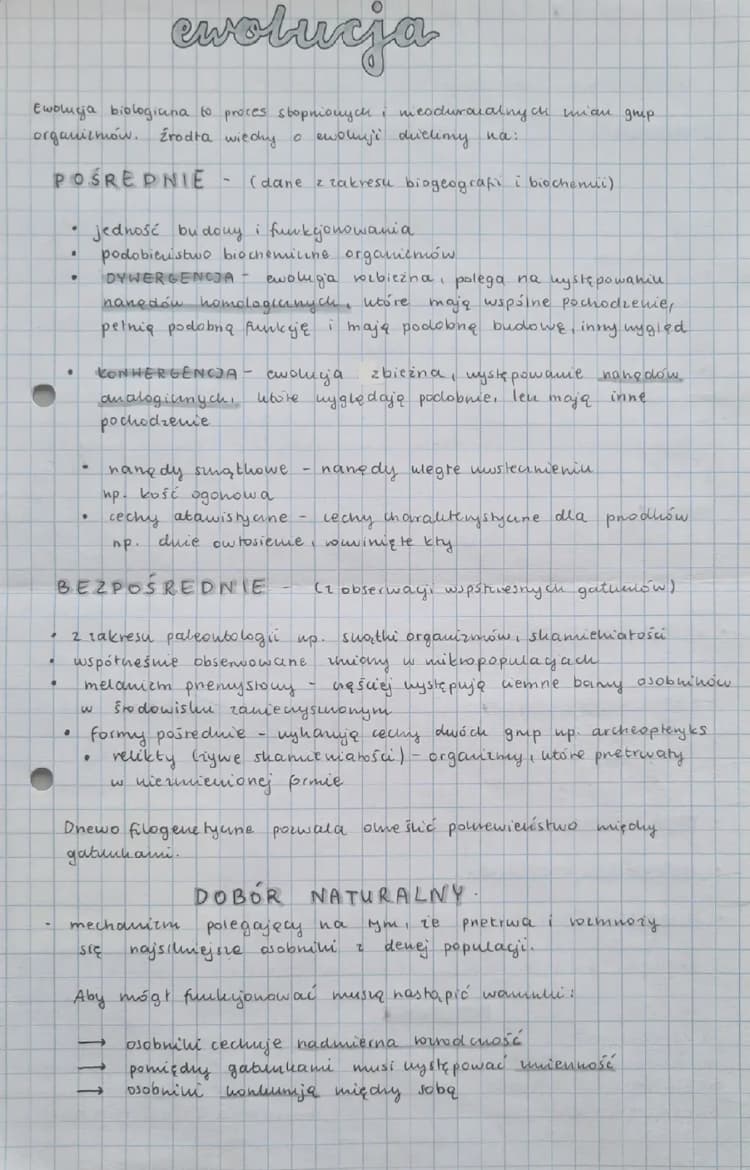 ewolucja
Ewolucja biologiczna to proces stopniowych i nieodwracalnych zmian grup
organizmów. Źródła wiedzy o ewolucji dzielimy na:
POŚREDNIE - (dane z zakresu biogeografi i biochemii)
• jedność budowy i funkcjonowania
• podobieństwo biochemiczne organizmów
• DYWERGENCJA - ewolucja rozbieżna, polega na występowaniu
narządów homologicznych, które mają wspólne pochodzenie,
pełnią podobną funkcję i mają podobną budowę, inny wygląd
• KONWERGENCJA - ewolucja zbieżna, występowanie narządów
analogicznych, które wyglądają podobnie, lecz mają inne
pochodzenie
• narządy szczątkowe - narządy uległe uwstecznieniu
np. kość ogonowa
• cechy atawistyczne - cechy charakterystyczne dla przodków
np. duże owłosienie, rozwinięte kły
BEZPOŚREDNIE - (z obserwacji współczesnych gatunków)
• z zakresu paleontologii np. szczątki organizmów, skamieniałości
• współcześnie obserwowane zmiany w mikropopulacjach
• melanizm przemysłowy - częściej występują ciemne barwy osobników
w środowisku zanieczyszczonym
• formy pośrednie - wykazują cechy dwóch grup np. archeopteryks
• relikty (żywe skamieniałości) - organizmy, które przetrwały
w niezmienionej formie
Drzewo filogenetyczne pozwala określić pokrewieństwo między
gatunkami.
DOBÓR NATURALNY.
- mechanizm polegający na tym, że przetrwa i rozmnoży
się najsilniejsze osobniki z danej populacji.
Aby mógł funkcjonować muszą nastąpić warunki:
→ osobniki cechuje nadmierna rozrodczość
→ pomiędzy gatunkami musi występować zmienność
→ osobniki konkurują między sobą